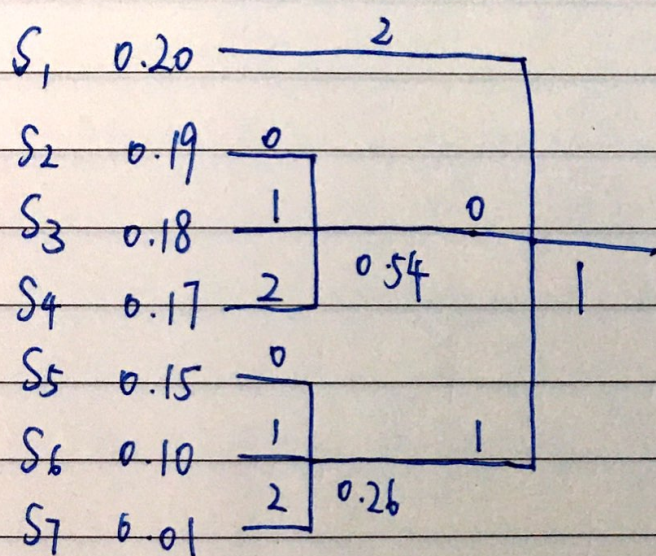 S1 0.20 2
S2 0.19 0
S3 0.18 1 0
0.54 1
S4 0.17 2
S5 0.15 0
S6 0.10 1 1
0.26
S7 0.01 2